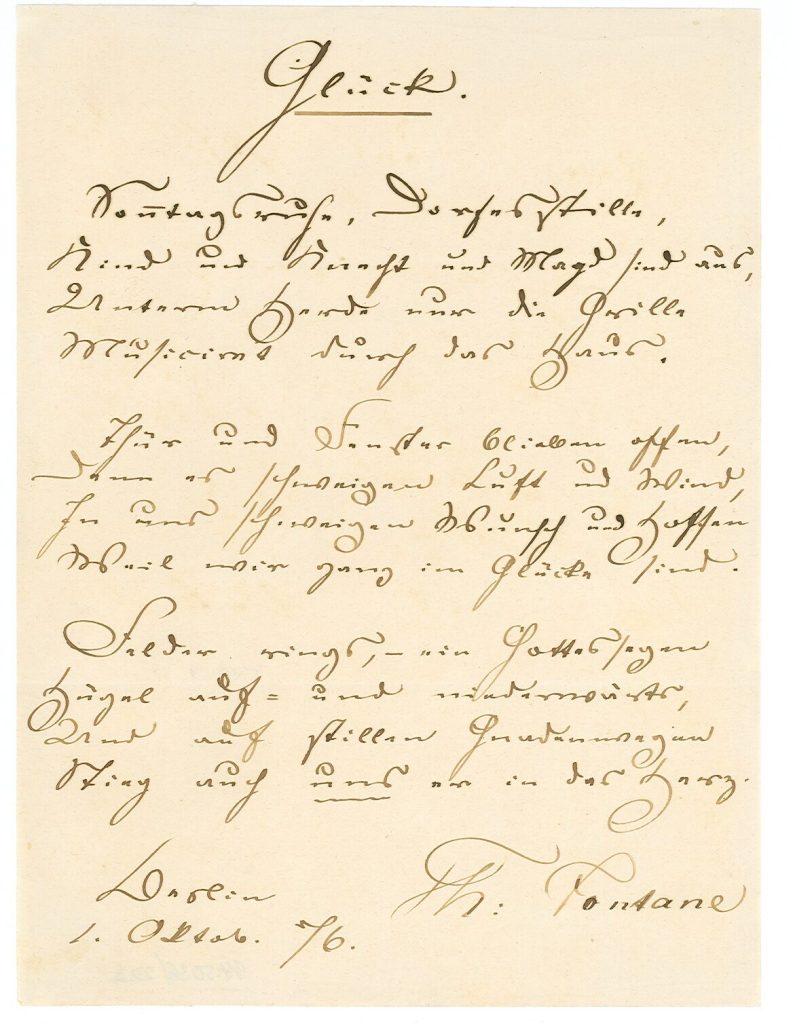 Glück.
Sonntagsruhe, Dorfesstille,
Kind und Knecht und Magd sind aus,
Unterm Herde nur die Grille
Musicirt durch das Haus.
Thür und Fenster blieben offen,
Denn es schweigen Luft und Wind,
In uns schweigen Wunsch und Hoffen
Weil wir ganz im Glücke sind.
Felder rings, – ein Gottessegen
Hügel auf= und niederwärts,
Und auf stillen Gnadenwegen
Stieg auch uns er in das Herz.
Berlin
1. Oktob. 76.
Th: Fontane